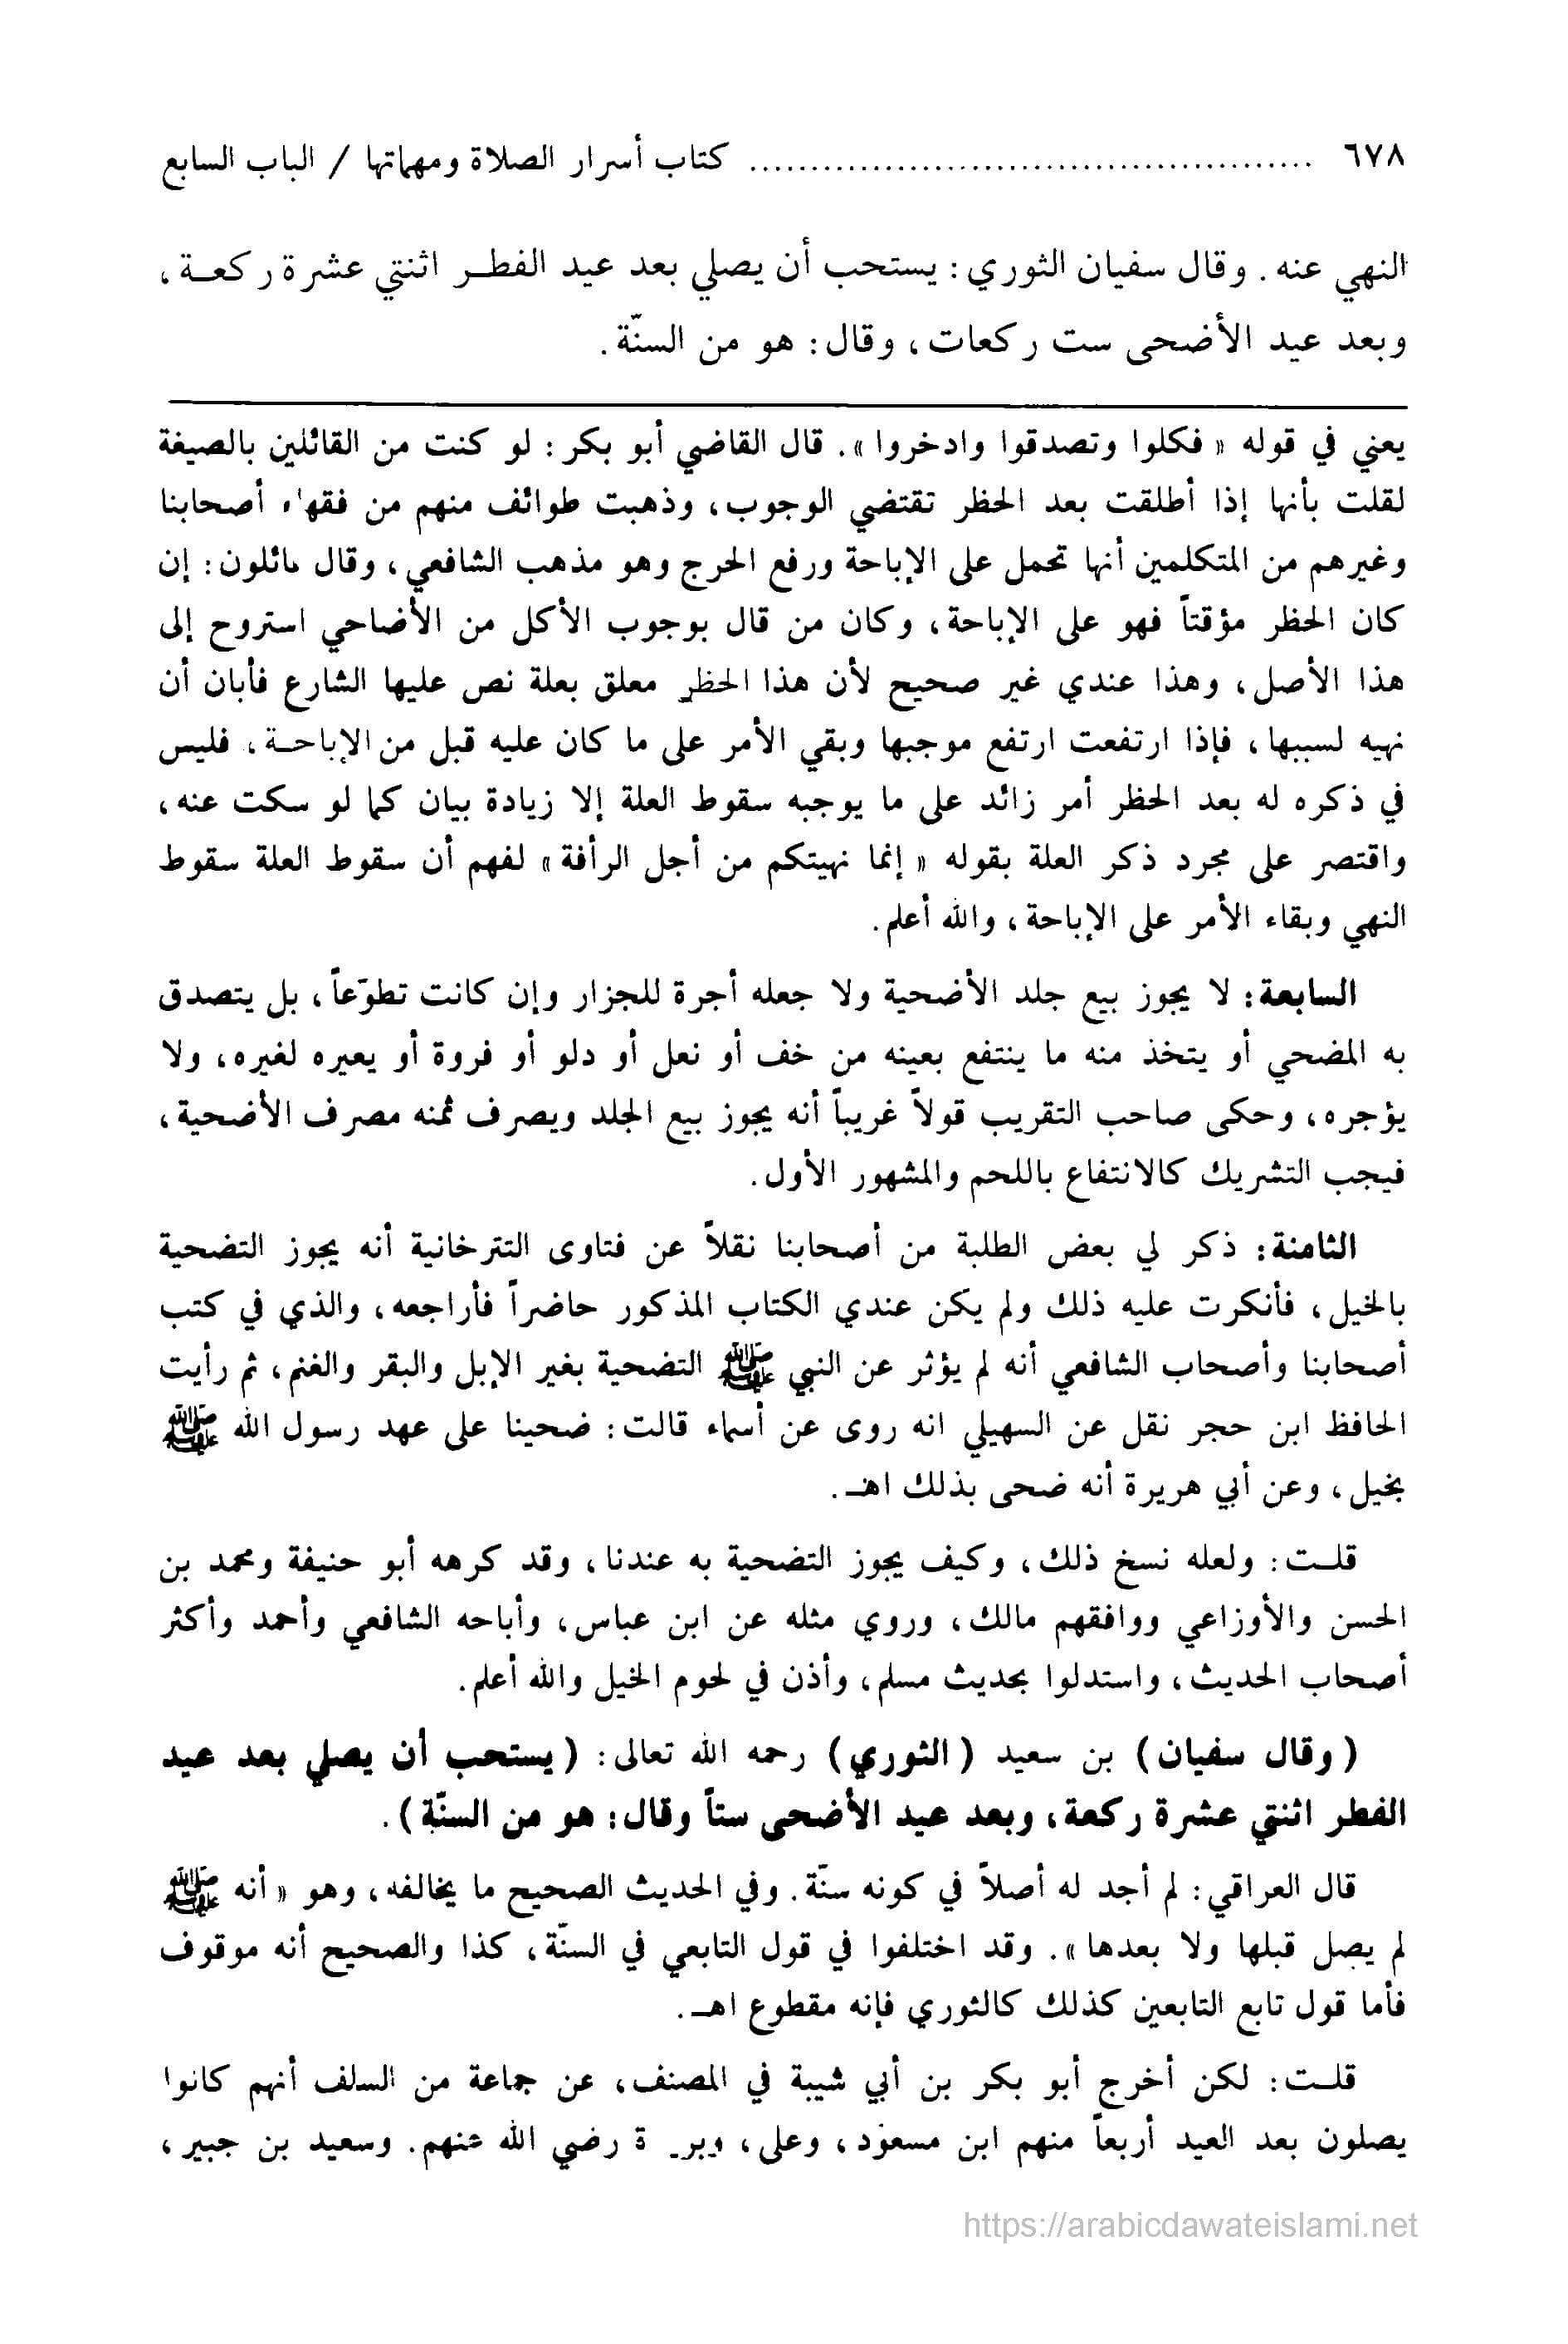 ٦٧٨ ................................................ كتاب أسرار الصلاة ومهماتها / الباب السابع
النهي عنه. وقال سفيان الثوري: يستحب أن يصلي بعد عيد الفطـر اثنتي عشرة ركعـة،
وبعد عيد الأضحى ست ركعات، وقال: هو من السنّة.
يعني في قوله « فكلوا وتصدقوا وادخروا ». قال القاضي أبو بكر: لو كنت من القائلين بالصيغة
لقلت بأنها إذا أطلقت بعد الحظر تقتضي الوجوب، وذهبت طوائف منهم من فقهاء أصحابنا
وغيرهم من المتكلمين أنها تحمل على الإباحة ورفع الحرج وهو مذهب الشافعي، وقال مائلون: إن
كان الحظر مؤقتاً فهو على الإباحة، وكان من قال بوجوب الأكل من الأضاحي استروح إلى
هذا الأصل، وهذا عندي غير صحيح لأن هذا الحظر معلق بعلة نص عليها الشارع فأبان أن
نهيه لسببها، فإذا ارتفعت ارتفع موجبها وبقي الأمر على ما كان عليه قبل من الإباحـة، فليس
في ذكره له بعد الحظر أمر زائد على ما يوجبه سقوط العلة إلا زيادة بيان كما لو سكت عنه،
واقتصر على مجرد ذكر العلة بقوله « إنما نهيتكم من أجل الرأفة » لفهم أن سقوط العلة سقوط
النهي وبقاء الأمر على الإباحة، والله أعلم.
السابعة: لا يجوز بيع جلد الأضحية ولا جعله أجرة للجزار وإن كانت تطوّعاً، بل يتصدق
به المضحي أو يتخذ منه ما ينتفع بعينه من خف أو نعل أو دلو أو فروة أو يعيره لغيره، ولا
يؤجره، وحكى صاحب التقريب قولاً غريباً أنه يجوز بيع الجلد ويصرف ثمنه مصرف الأضحية،
فيجب التشريك كالانتفاع باللحم والمشهور الأول.
الثامنة: ذكر لي بعض الطلبة من أصحابنا نقلاً عن فتاوى التترخانية أنه يجوز التضحية
بالخيل، فأنكرت عليه ذلك ولم يكن عندي الكتاب المذكور حاضراً فأراجعه، والذي في كتب
أصحابنا وأصحاب الشافعي أنه لم يؤثر عن النبي ﷺ التضحية بغير الإبل والبقر والغنم، ثم رأيت
الحافظ ابن حجر نقل عن السهيلي انه روى عن أسماء قالت: ضحينا على عهد رسول الله ﷺ
بخيل، وعن أبي هريرة أنه ضحى بذلك اهـ.
قلـت: ولعله نسخ ذلك، وكيف يجوز التضحية به عندنا، وقد كرهه أبو حنيفة ومحمد بن
الحسن والأوزاعي ووافقهم مالك، وروي مثله عن ابن عباس، وأباحه الشافعي وأحمد وأكثر
أصحاب الحديث، واستدلوا بحديث مسلم، وأذن في لحوم الخيل والله أعلم.
( وقال سفيان ) بن سعيد ( الثوري ) رحمه الله تعالى: ( يستحب أن يصلي بعد عيد
الفطر اثنتي عشرة ركعة، وبعد عيد الأضحى ستاً وقال: هو من السنّة ).
قال العراقي: لم أجد له أصلاً في كونه سنّة. وفي الحديث الصحيح ما يخالفه، وهو « أنه ﷺ
لم يصل قبلها ولا بعدها ». وقد اختلفوا في قول التابعي في السنّة، كذا والصحيح أنه موقوف
فأما قول تابع التابعين كذلك كالثوري فإنه مقطوع اهـ.
قلـت: لكن أخرج أبو بكر بن أبي شيبة في المصنف، عن جماعة من السلف أنهم كانوا
يصلون بعد العيد أربعاً منهم ابن مسعود، وعلى، رضي الله عنهم. وسعيد بن جبير،
https://arabicdawateislami.net